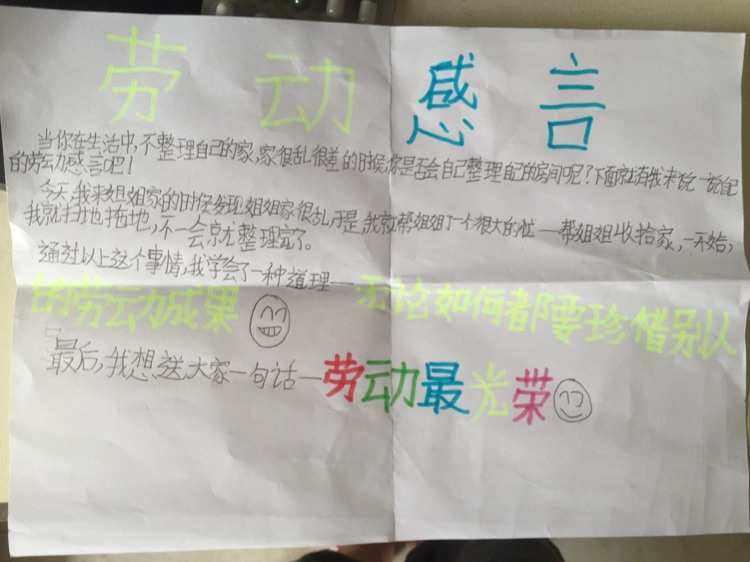 劳动感言
当你在生活中,不整理自己的家,家很乱很差的时候,你是否会自己整理自己的房间呢?下面就有我来说一说自己
的劳动感言吧!
今天,我来姐姐家的时候发现姐姐家很乱,于是,我就帮姐姐了一个很大的忙——帮姐姐收拾家,一开始,
我就扫地拖地,不一会就整理完了。
通过以上这个事情,我学会了一种道理——无论如何都要珍惜别人
的劳动成果
最后,我想送大家一句话——劳动最光荣